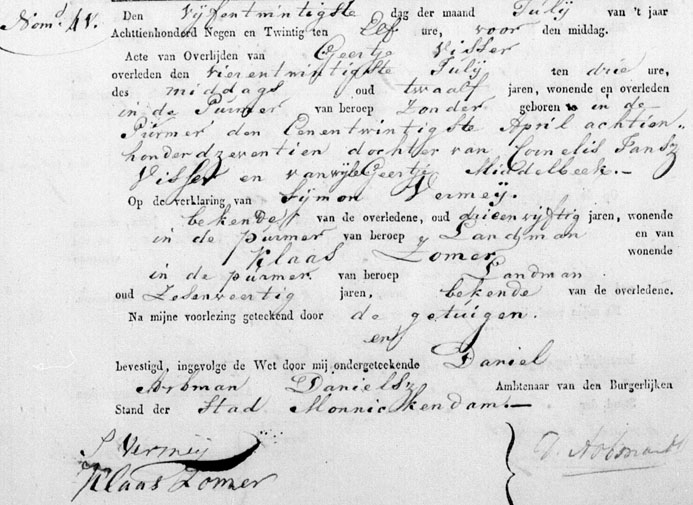 Nomr. 45.
Den Vijfentwintigste dag der maand Julij van 't jaar
Achttienhonderd Negen en Twintig ten Elf ure, voor den middag.
Acte van Overlijden van Geertje Visser
overleden den vierentwintigste Julij ten drie ure,
des middags oud twaalf jaren, wonende en overleden
in de Purmer van beroep Zonder geboren in de
Purmer den Eenentwintigste April achtien
honderdzeventien dochter van Cornelis Jansz
Visser en van wijle Geertje Middelbeek.
Op de verklaring van Sijmon Vermeij.
bekende van de overledene, oud drieenvijftig jaren, wonende
in de purmer van beroep Landman en van
Klaas Zomer wonende
in de purmer van beroep Landman
oud Zesenveertig jaren, bekende van de overledene.
Na mijne voorlezing geteekend door de getuigen.
en
bevestigd, ingevolge de Wet door mij ondergeteekende Daniel
Danielsz Ambtenaar van den Burgerlijken
Stand der Stad Monnickendam
S Vermeij
Klaas Zomer